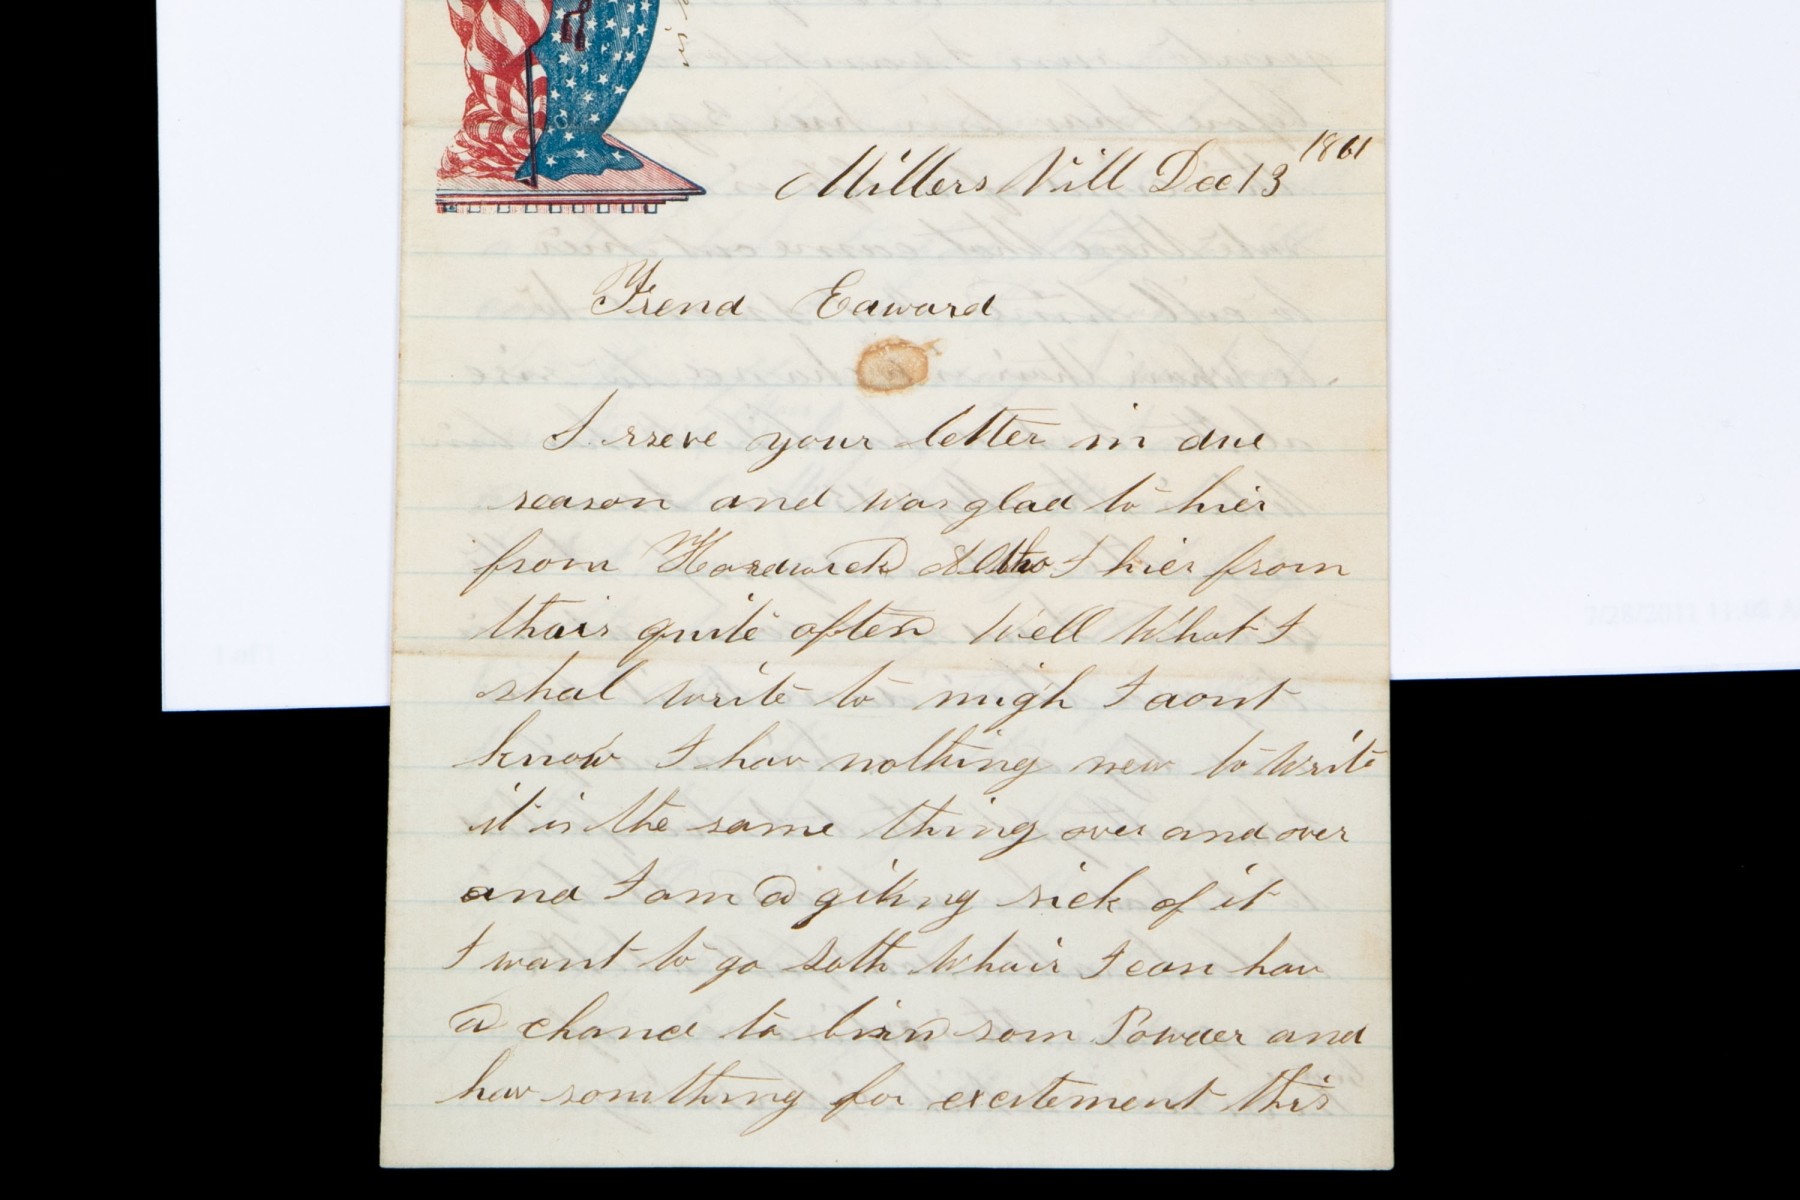 Millers Vill Dec 13 1861
Frend Edward
I rseve your letter in due
season and was glad to hier
from Hardwick Altho I hier from
thair quite often Well What I
shal write to nigh I dont
know I hav nothing new to write
it is the same thing over and over
and I am a giting sick of it
I want to go Soth Whair I can hav
a chance to birn som Powder and
hav somthing for excitement this
7/28/2011 11:08 A